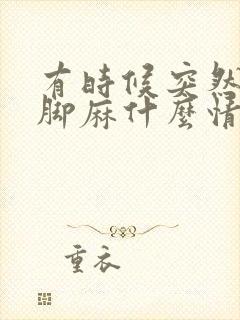 有時候突然
脚麻什麼情
重衣